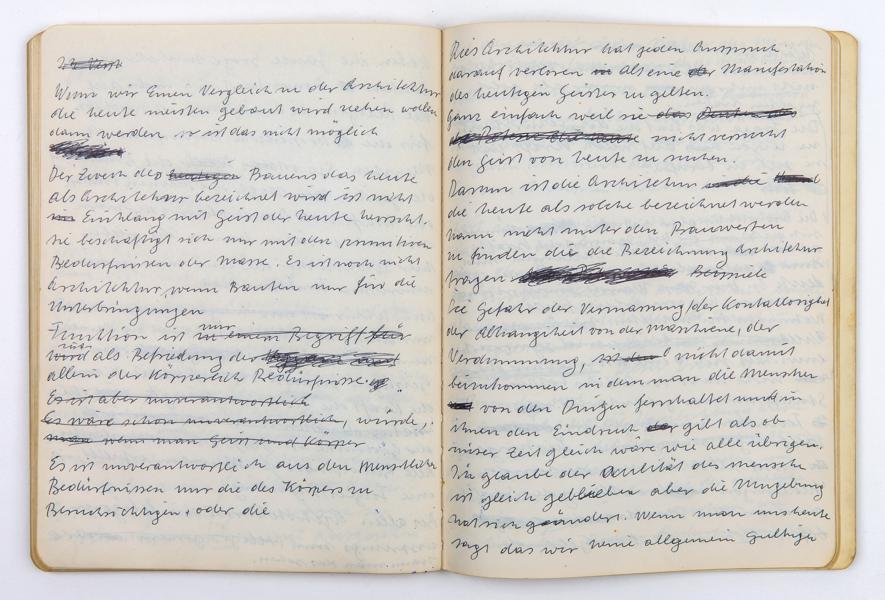 Wenn wir Einen Vergleich zu der Architektur
die heute meisten gebaut wird ziehen wollen
dann werden so ist das nicht möglich
Der Zweck des heutigen Bauens das heute
als Architektur bezeichnet wird ist nicht
im Einklang mit Geist der heute herrscht.
sie beschäftigt sich nur mit den primitiven
Bedürfnissen der Masse. Es ist noch nicht
Architektur, wenn Bauten nur für die
Unterbringungen
Funktion ist nur in einem Begriff für
wird als Befriedung der
allein der Körperlich Bedürfnisse
Es ist aber unverantwortlich
Es wäre schon unverantwortlich, würde,
man wenn man Geist und Körper
Es ist unverantwortlich aus den Menschliche
Bedürfnissen nur die des Körpers zu
Berücksichtigen, oder die
Dies Architektur hat jeden Anspruch
darauf verloren in als eine der Manifestation
des heutigen Geistes zu gelten.
ganz einfach weil sie das
nicht versucht
den Geist von heute zu suchen.
Darum ist die Architektur
die heute als solche bezeichnet werden
kann nicht unter den Bauwerken
zu finden die die Bezeichnung Architektur
tragen Beispiele
Die Gefahr der Vermassung/der Kontaktlosigkeit
der Abhängigkeit von der Maschiene, der
Verdummung, ist nicht damit
beizukommen in dem man die Menschen
von den Dingen fernhaltet und in
ihnen den Eindruck der gibt als ob
unser Zeit gleich wäre wie alle übrigen.
Ich glaube der des mensche
ist gleich geblieben aber die Umgebung
hat sich geändert. Wenn man uns heute
sagt das wir keine allgemein gultigen